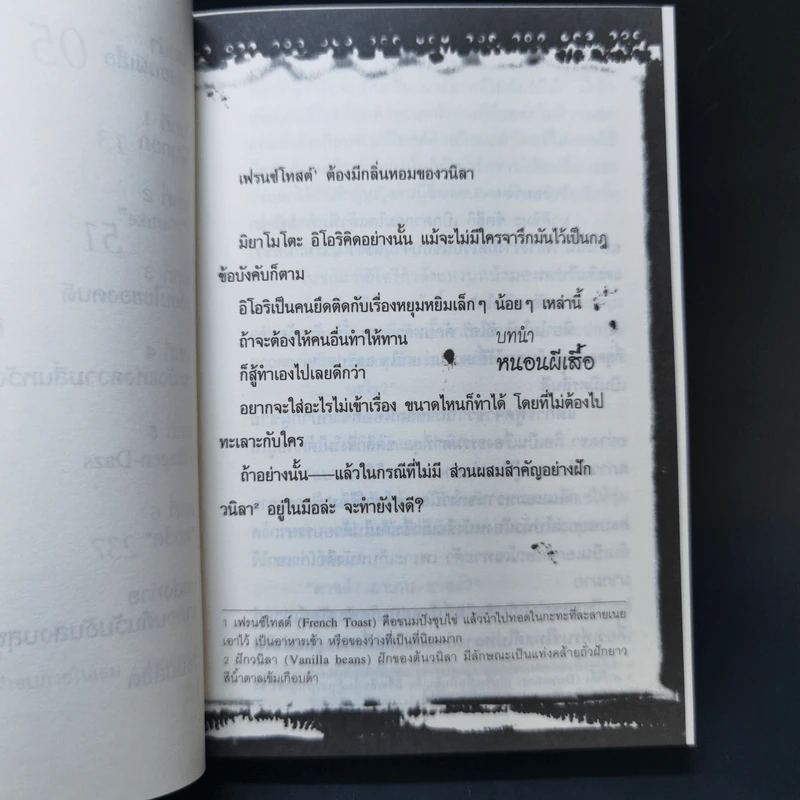 เฟรนช์โทสต์¹ ต้องมีกลิ่นหอมของวนิลา
มิยาโมโตะ อิโอริคิดอย่างนั้น แม้จะไม่มีใครจารึกมันไว้เป็นกฎ
ข้อบังคับก็ตาม
อิโอริเป็นคนยึดติดกับเรื่องหยุมหยิมเล็ก ๆ น้อย ๆ เหล่านี้
ถ้าจะต้องให้คนอื่นทำให้ทาน
ก็สู้ทำเองไปเลยดีกว่า
บทนำ
หนอนผีเสื้อ
อยากจะใส่อะไรไม่เข้าเรื่อง ขนาดไหนก็ทำได้ โดยที่ไม่ต้องไป
ทะเลาะกับใคร
ถ้าอย่างนั้น——แล้วในกรณีที่ไม่มี ส่วนผสมสำคัญอย่างฝัก
วนิลา² อยู่ในมือล่ะ จะทำยังไงดี?
1 เฟรนช์โทสต์ (French Toast) คือขนมปังชุบไข่ แล้วนำไปทอดในกะทะที่ละลายเนย
เอาไว้ เป็นอาหารเช้า หรือของว่างที่เป็นที่นิยมมาก
2 ฝักวนิลา (Vanilla beans) ฝักของต้นวนิลา มีลักษณะเป็นแท่งคล้ายถั่วฝักยาว
สีน้ำตาลเข้มเกือบดำ